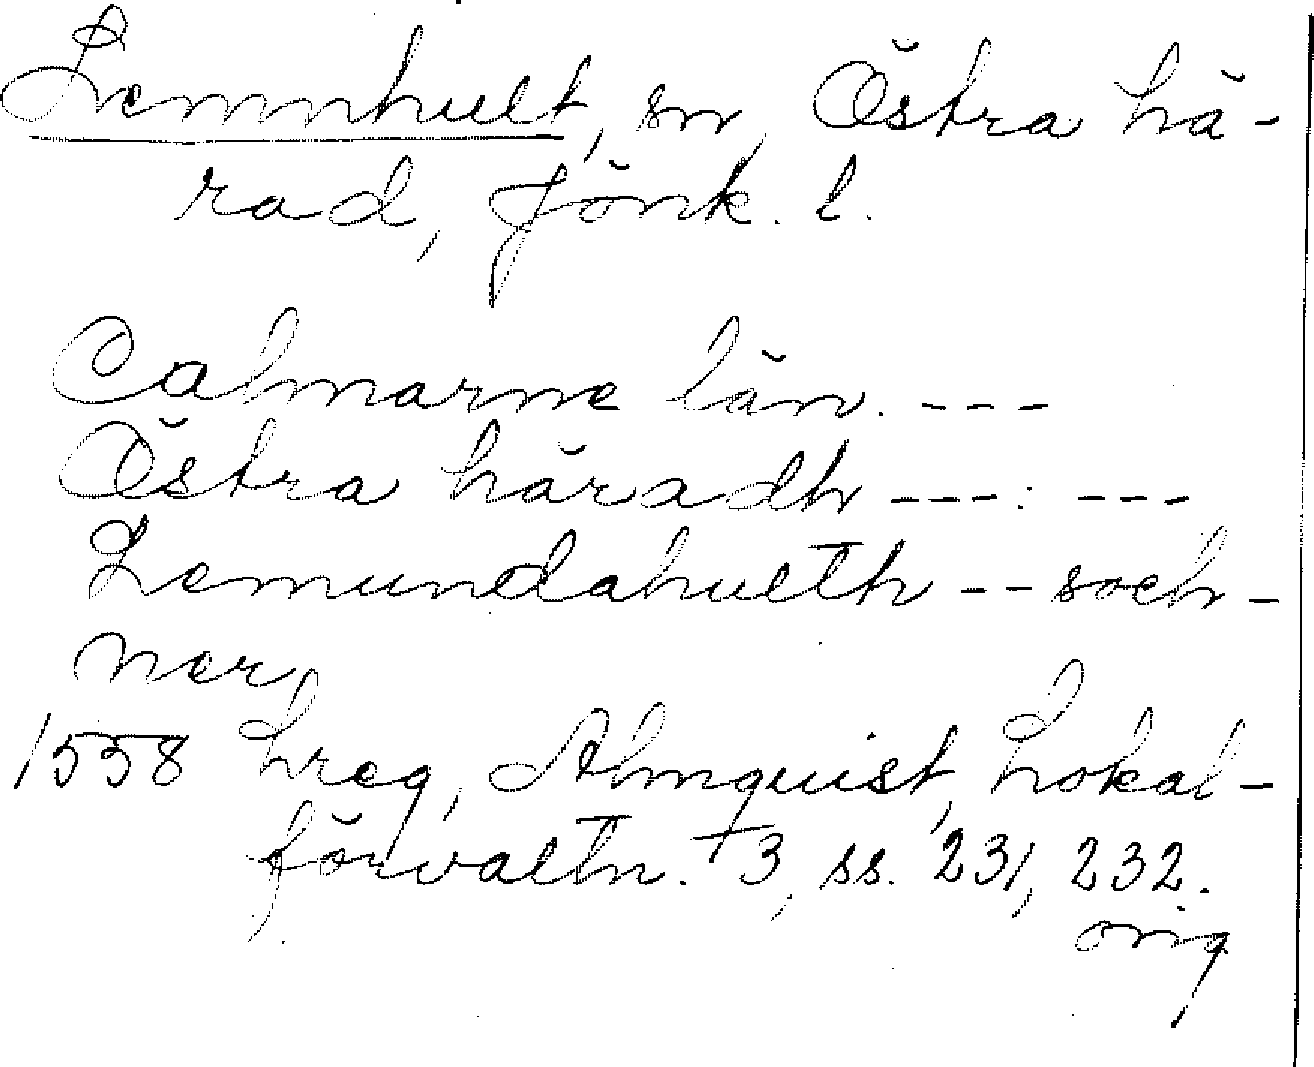 Lemnhult, sn, Östra hä-
rad, Jönk. l.
Calmarne län. ---
Östra häradh ---: ---
Lemundahulth -- soch-
ner,
1558 Lreg, Almquist, Lokal-
förvaltn. +3, ss. 231, 232.
orig